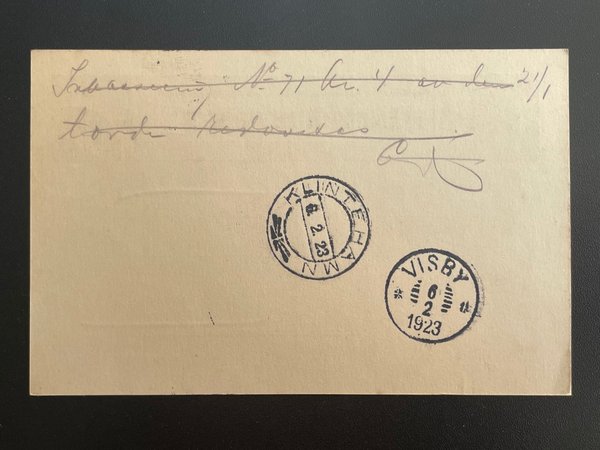 Inkassering No 71 Kr. 4 av den 21/1
torde redovisas
KLINTEHAMN
6. 2. 23
VISBY
6
2
1923